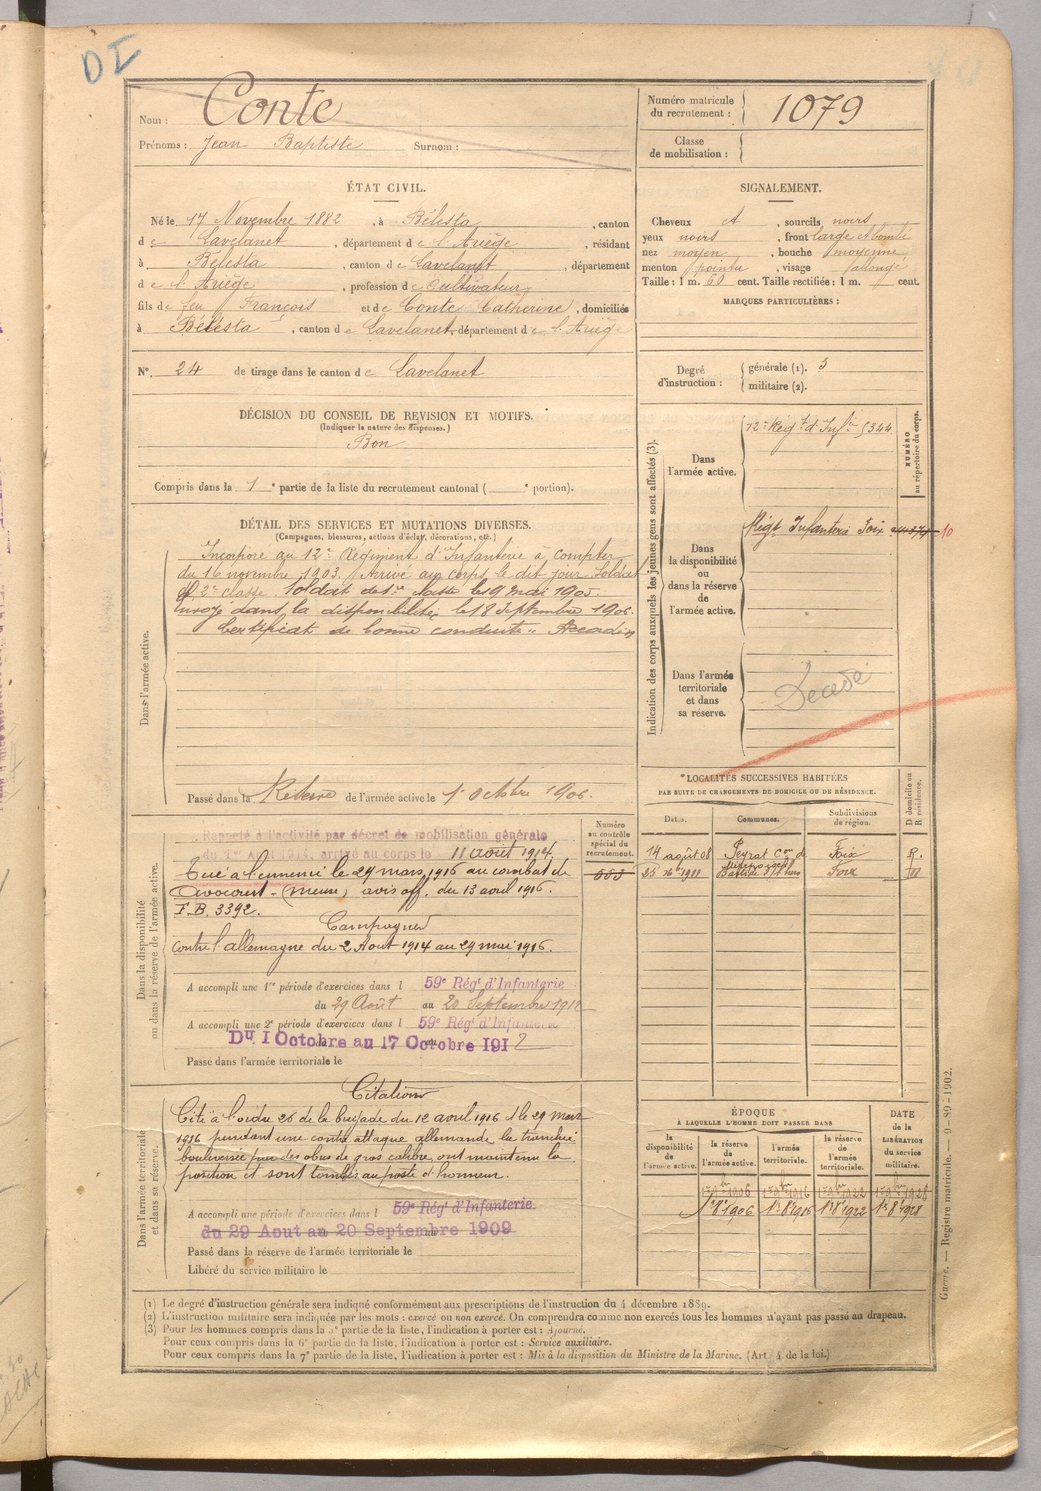 DI
Nom : Conte
Prénoms : Jean Baptiste Surnom :
Numéro matricule du recrutement : 1079
Classe de mobilisation :
ÉTAT CIVIL.
Né le 17 Novembre 1882, à Bélesta, canton
de Lavelanet, département de l'Ariège, résidant
à Bélesta, canton de Lavelanet, département
de l'Ariège, profession de Cultivateur
fils de feu François et de Conte Catherine, domiciliés
à Bélesta, canton de Lavelanet, département de l'Ariège
SIGNALEMENT.
Cheveux et, sourcils noirs
yeux noirs, front large et bombé
nez moyen, bouche moyenne
menton pointu, visage allongé
Taille : 1 m. 60 cent. Taille rectifiée : 1 m. cent.
MARQUES PARTICULIÈRES :
N°. 24 de tirage dans le canton de Lavelanet
Degré d'instruction : générale (1). 3
militaire (2).
DÉCISION DU CONSEIL DE REVISION ET MOTIFS.
(Indiquer la nature des dispenses.)
Bon
Compris dans la 1e partie de la liste du recrutement cantonal ( e portion).
Indication des corps auxquels les jeunes gens sont affectés (3).
NUMÉRO au répertoire du corps.
Dans l'armée active.
12e Régt d'Infie 5344
Dans la disponibilité ou dans la réserve de l'armée active.
Régt Infanterie Foix 10
Dans l'armée territoriale et dans sa réserve.
Décédé
DÉTAIL DES SERVICES ET MUTATIONS DIVERSES.
(Campagnes, blessures, actions d'éclat, décorations, etc.)
Dans l'armée active.
Incorporé au 12e Régiment d'Infanterie à compter
du 16 novembre 1903. Arrivé au corps le dit jour Soldat
de 2e classe. Soldat de 1re classe le 19 mai 1905.
Envoyé dans la disponibilité le 18 Septembre 1906.
Certificat de bonne conduite "Accordé"
Passé dans la Réserve de l'armée active le 1er Octobre 1906.
Dans la disponibilité ou dans la réserve de l'armée active.
Numéro au contrôle spécial du recrutement.
Rappelé à l'activité par décret de mobilisation générale
du 1er Août 1914, arrivé au corps le 11 août 1914.
Tué à l'ennemi le 29 mars 1916 au combat de
Avocourt - (Meuse) avis off. du 13 aout 1916.
F.B. 3392.
Campagnes
contre l'allemagne du 2 Aout 1914 au 29 mars 1916.
A accompli une 1re période d'exercices dans l 59e Régt d'Infanterie
du 29 Août au 20 Septembre 1912
A accompli une 2e période d'exercices dans l 59e Régt d'Infanterie
Du 1 Octobre au 17 Octobre 1912
Passé dans l'armée territoriale le
LOCALITÉS SUCCESSIVES HABITÉES
PAR SUITE DE CHANGEMENTS DE DOMICILE OU DE RÉSIDENCE.
Dates. Communes. Subdivisions de région. D domicile ou R résidence.
14 août 08 Peyrat Con de Mirepoix Foix R.
25 1911 Foix
Dans l'armée territoriale et dans sa réserve.
Citations
Cité à l'ordre 26 de la brigade du 12 avril 1916 : le 29 mars
1916 pendant une contre attaque allemande la tranchée
bouleversée par des obus de gros calibre, ont maintenu la
position et sont tombés au poste d'honneur.
A accompli une période d'exercices dans l 59e Régt d'Infanterie
du 29 Aout au 20 Septembre 1909
Passé dans la réserve de l'armée territoriale le
Libéré du service militaire le
ÉPOQUE
A LAQUELLE L'HOMME DOIT PASSER DANS
DATE de la LIBÉRATION du service militaire.
la disponibilité de l'armée active. la réserve de l'armée active. l'armée territoriale. la réserve de l'armée territoriale.
1er 8e 1906 1er 8e 1916 1er 8e 1922 1er 8e 1928
(1) Le degré d'instruction générale sera indiqué conformément aux prescriptions de l'instruction du 4 décembre 1889.
(2) L'instruction militaire sera indiquée par les mots : exercé ou non exercé. On comprendra comme non exercés tous les hommes n'ayant pas passé au drapeau.
(3) Pour les hommes compris dans la 5e partie de la liste, l'indication à porter est : Ajourné.
Pour ceux compris dans la 6e partie de la liste, l'indication à porter est : Service auxiliaire.
Pour ceux compris dans la 7e partie de la liste, l'indication à porter est : Mis à la disposition du Ministre de la Marine. (Art. 4 de la loi.)
Guerre. — Registre matricule. — 9-80-1902.